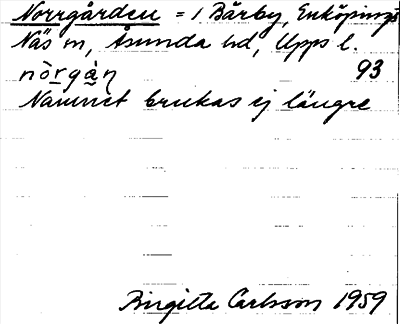 Norrgården = 1 Bärby, Enköpings
Näs sn, Åsunda hd, Upps l.
nòrgàṇ 93
Namnet brukas ej längre
Birgitta Carlsson 1959